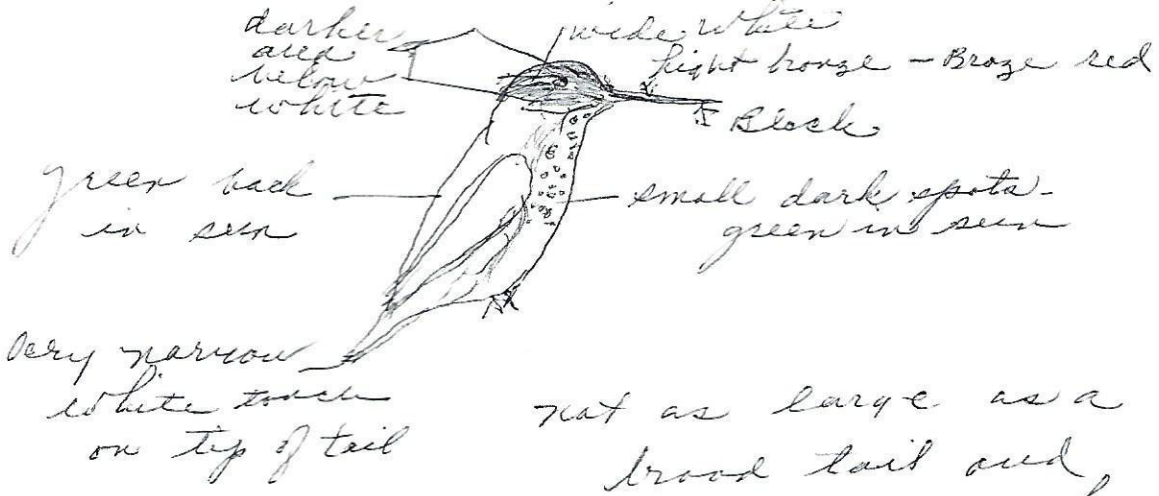 darker
area
below
white
wide white
light bronze - Broze red
Black
green back
in sun
small dark spots -
green in sun
Very narrow
white touch
on tip of tail
not as large as a
broad tail and,